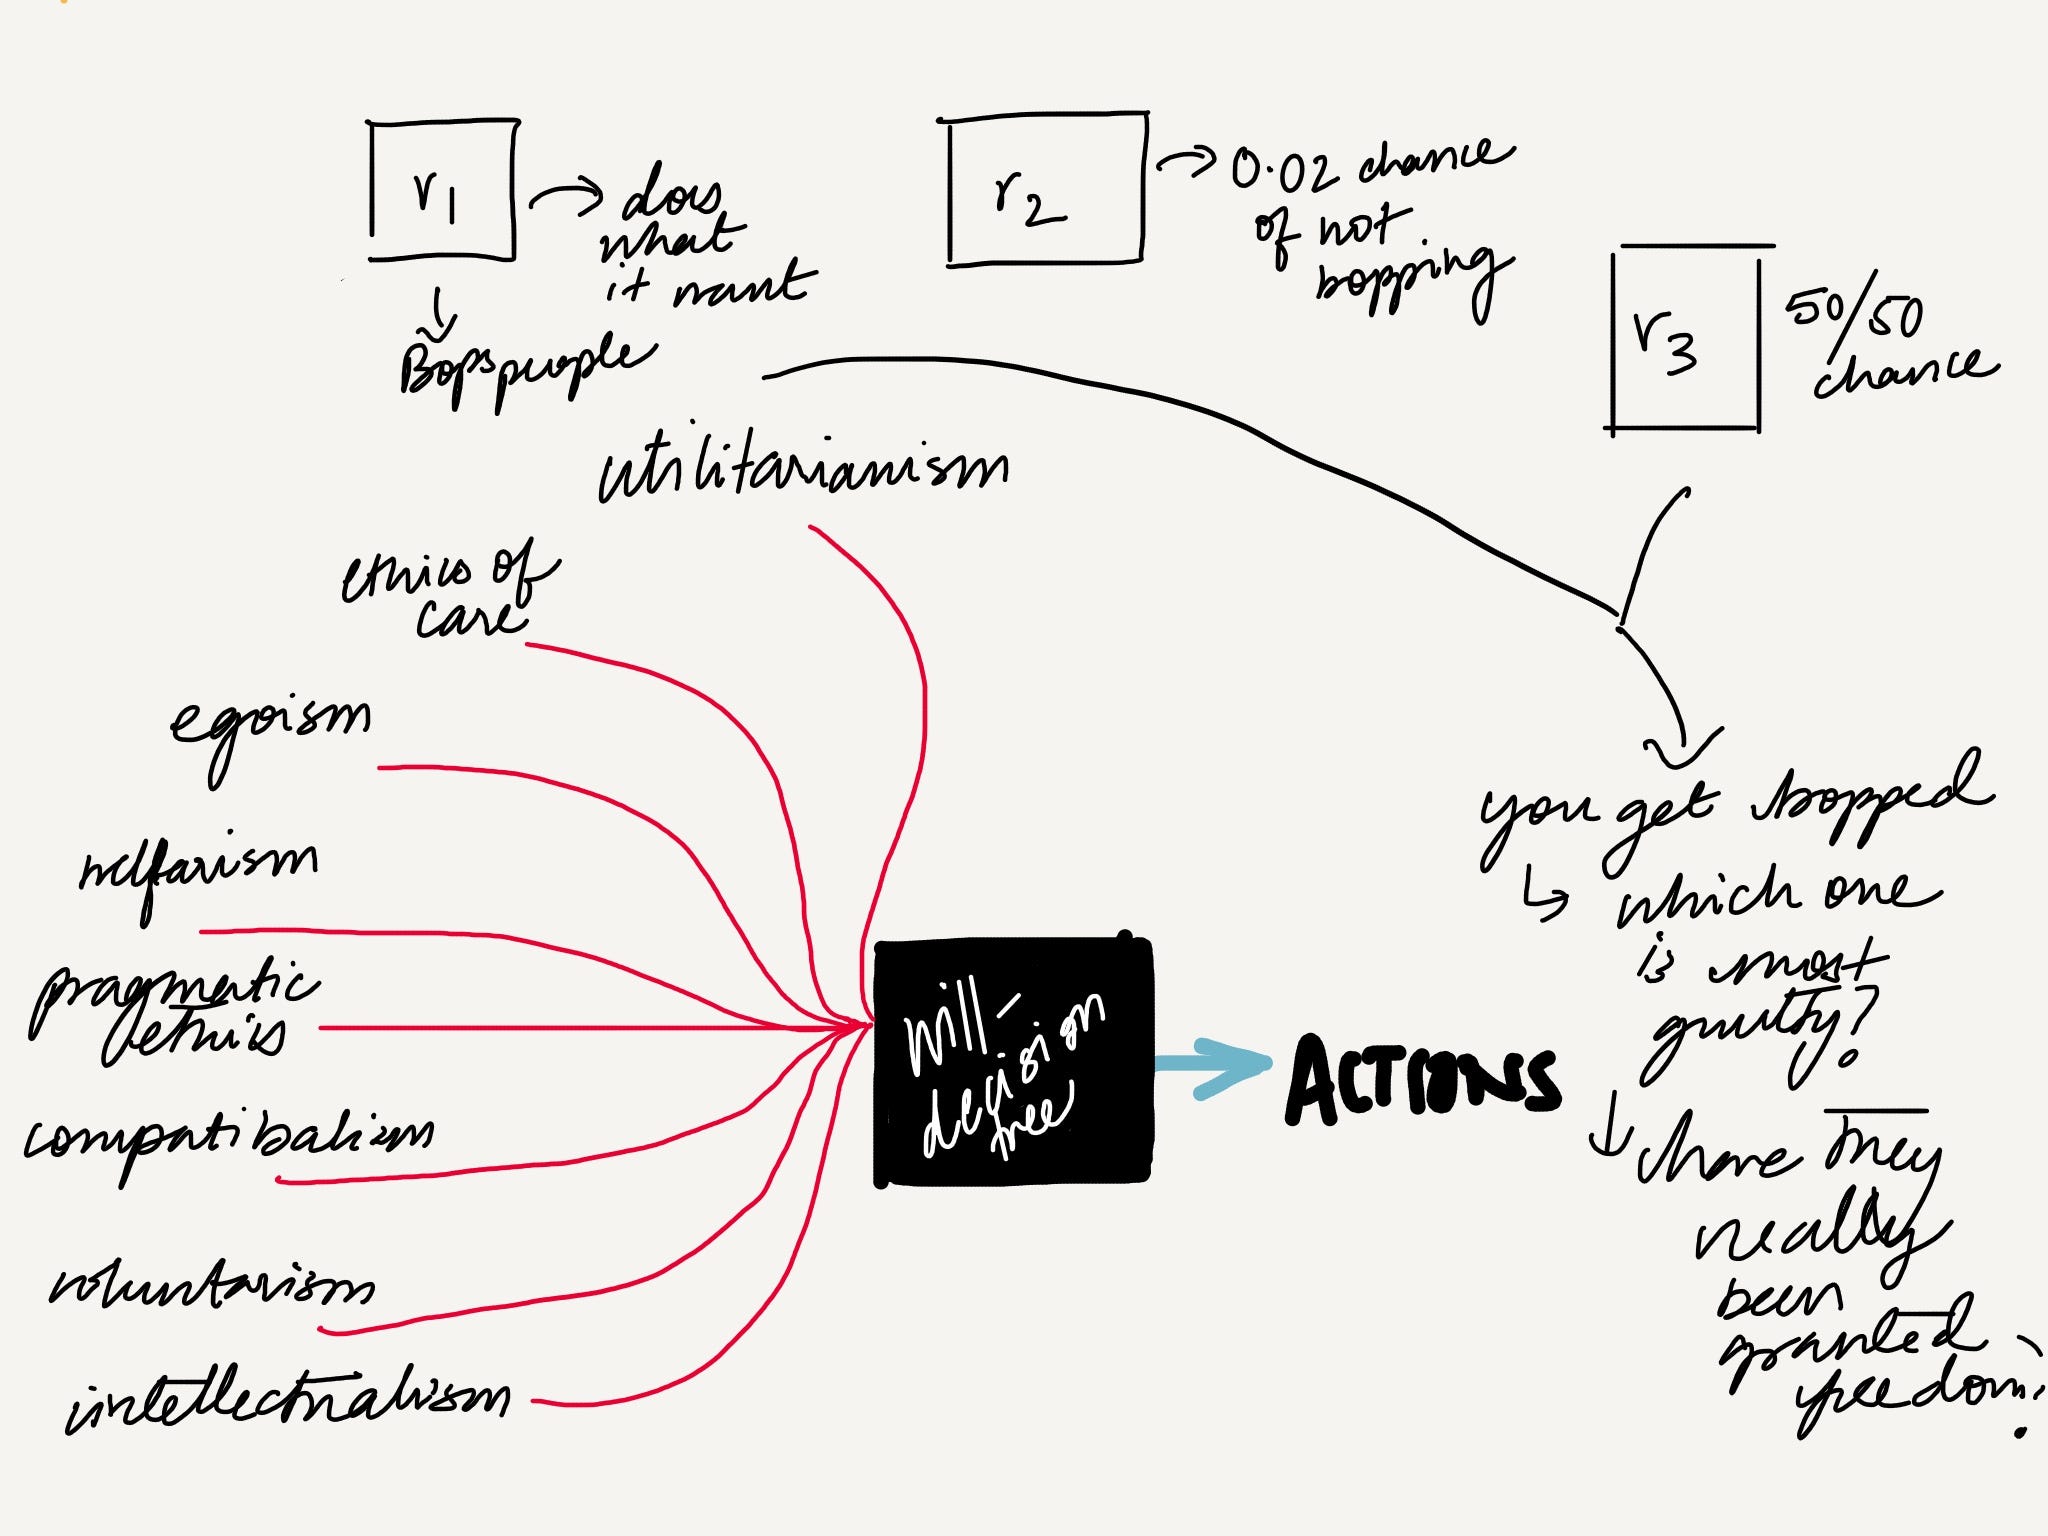 r1
does
what
it want
Bops people
r2
0.02 chance
of not
bopping
r3
50/50
chance
utilitarianism
ethics of
care
egoism
welfarism
pragmatic
ethics
compatibalism
voluntarism
intellectualism
will-
decision
tree
ACTIONS
you get bopped
which one
is most
guilty?
have they
really
been
granted
freedom?